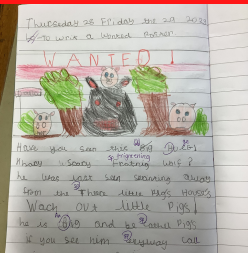 Thursday 28 Friday the 29 202
to write a Wanted Poster
WANTED!
Have you seen this Big
Hairy Scary frigrening Wolf?
he was last seen running away
from the Three little Pig's House's
Wach out little Pigs!
he is and be other Pigs
if you see him call